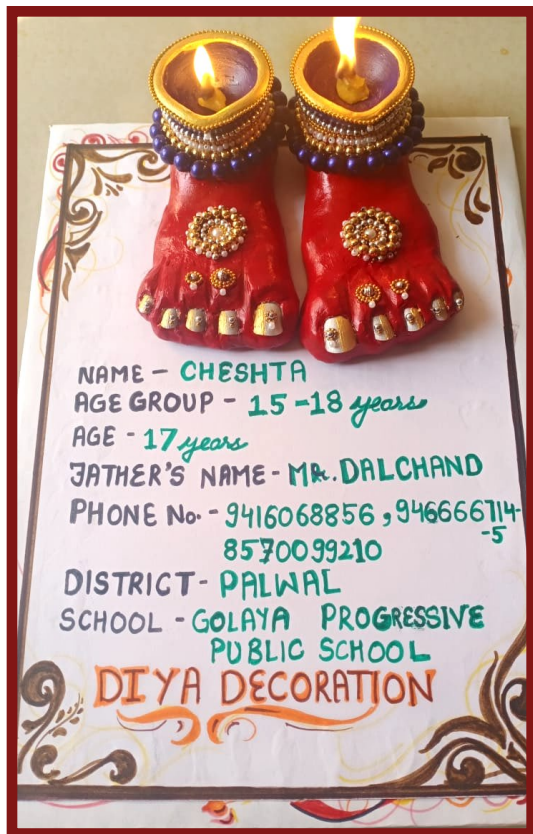 NAME - CHESHTA
AGE GROUP - 15-18 years
AGE - 17 years
FATHER'S NAME - MR. DALCHAND
PHONE No. - 9416068856, 946666714-
-5
8570099210
DISTRICT - PALWAL
SCHOOL - GOLAYA PROGRESSIVE
PUBLIC SCHOOL
DIYA DECORATION